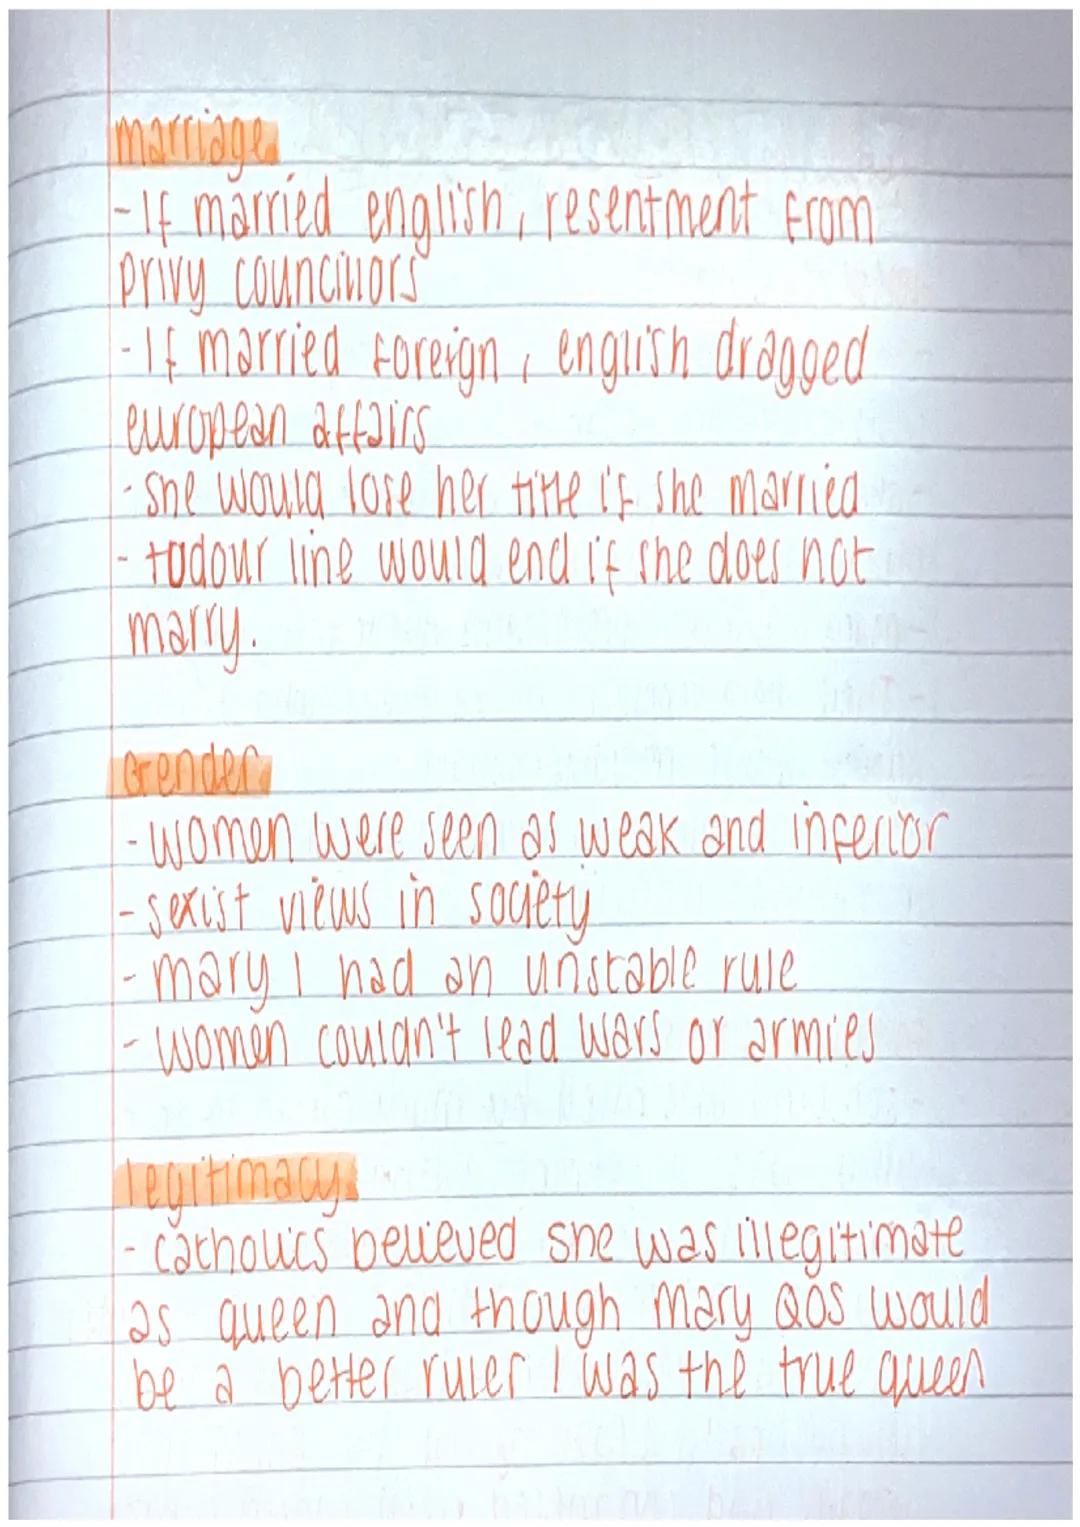 marriage
-If married english, resentment from
privy councillors
-If married foreign, english dragged
european affairs
-she would lose her title if she married
-tudour line would end if she does not
marry.
Gender
-women were seen as weak and inferior
-sexist views in society
-mary I had an unstable rule
-women couldn't lead wars or armies
legitimacy
-catholics believed she was illegitimate
as queen and though mary QOS would
be a better ruler / was the true queen